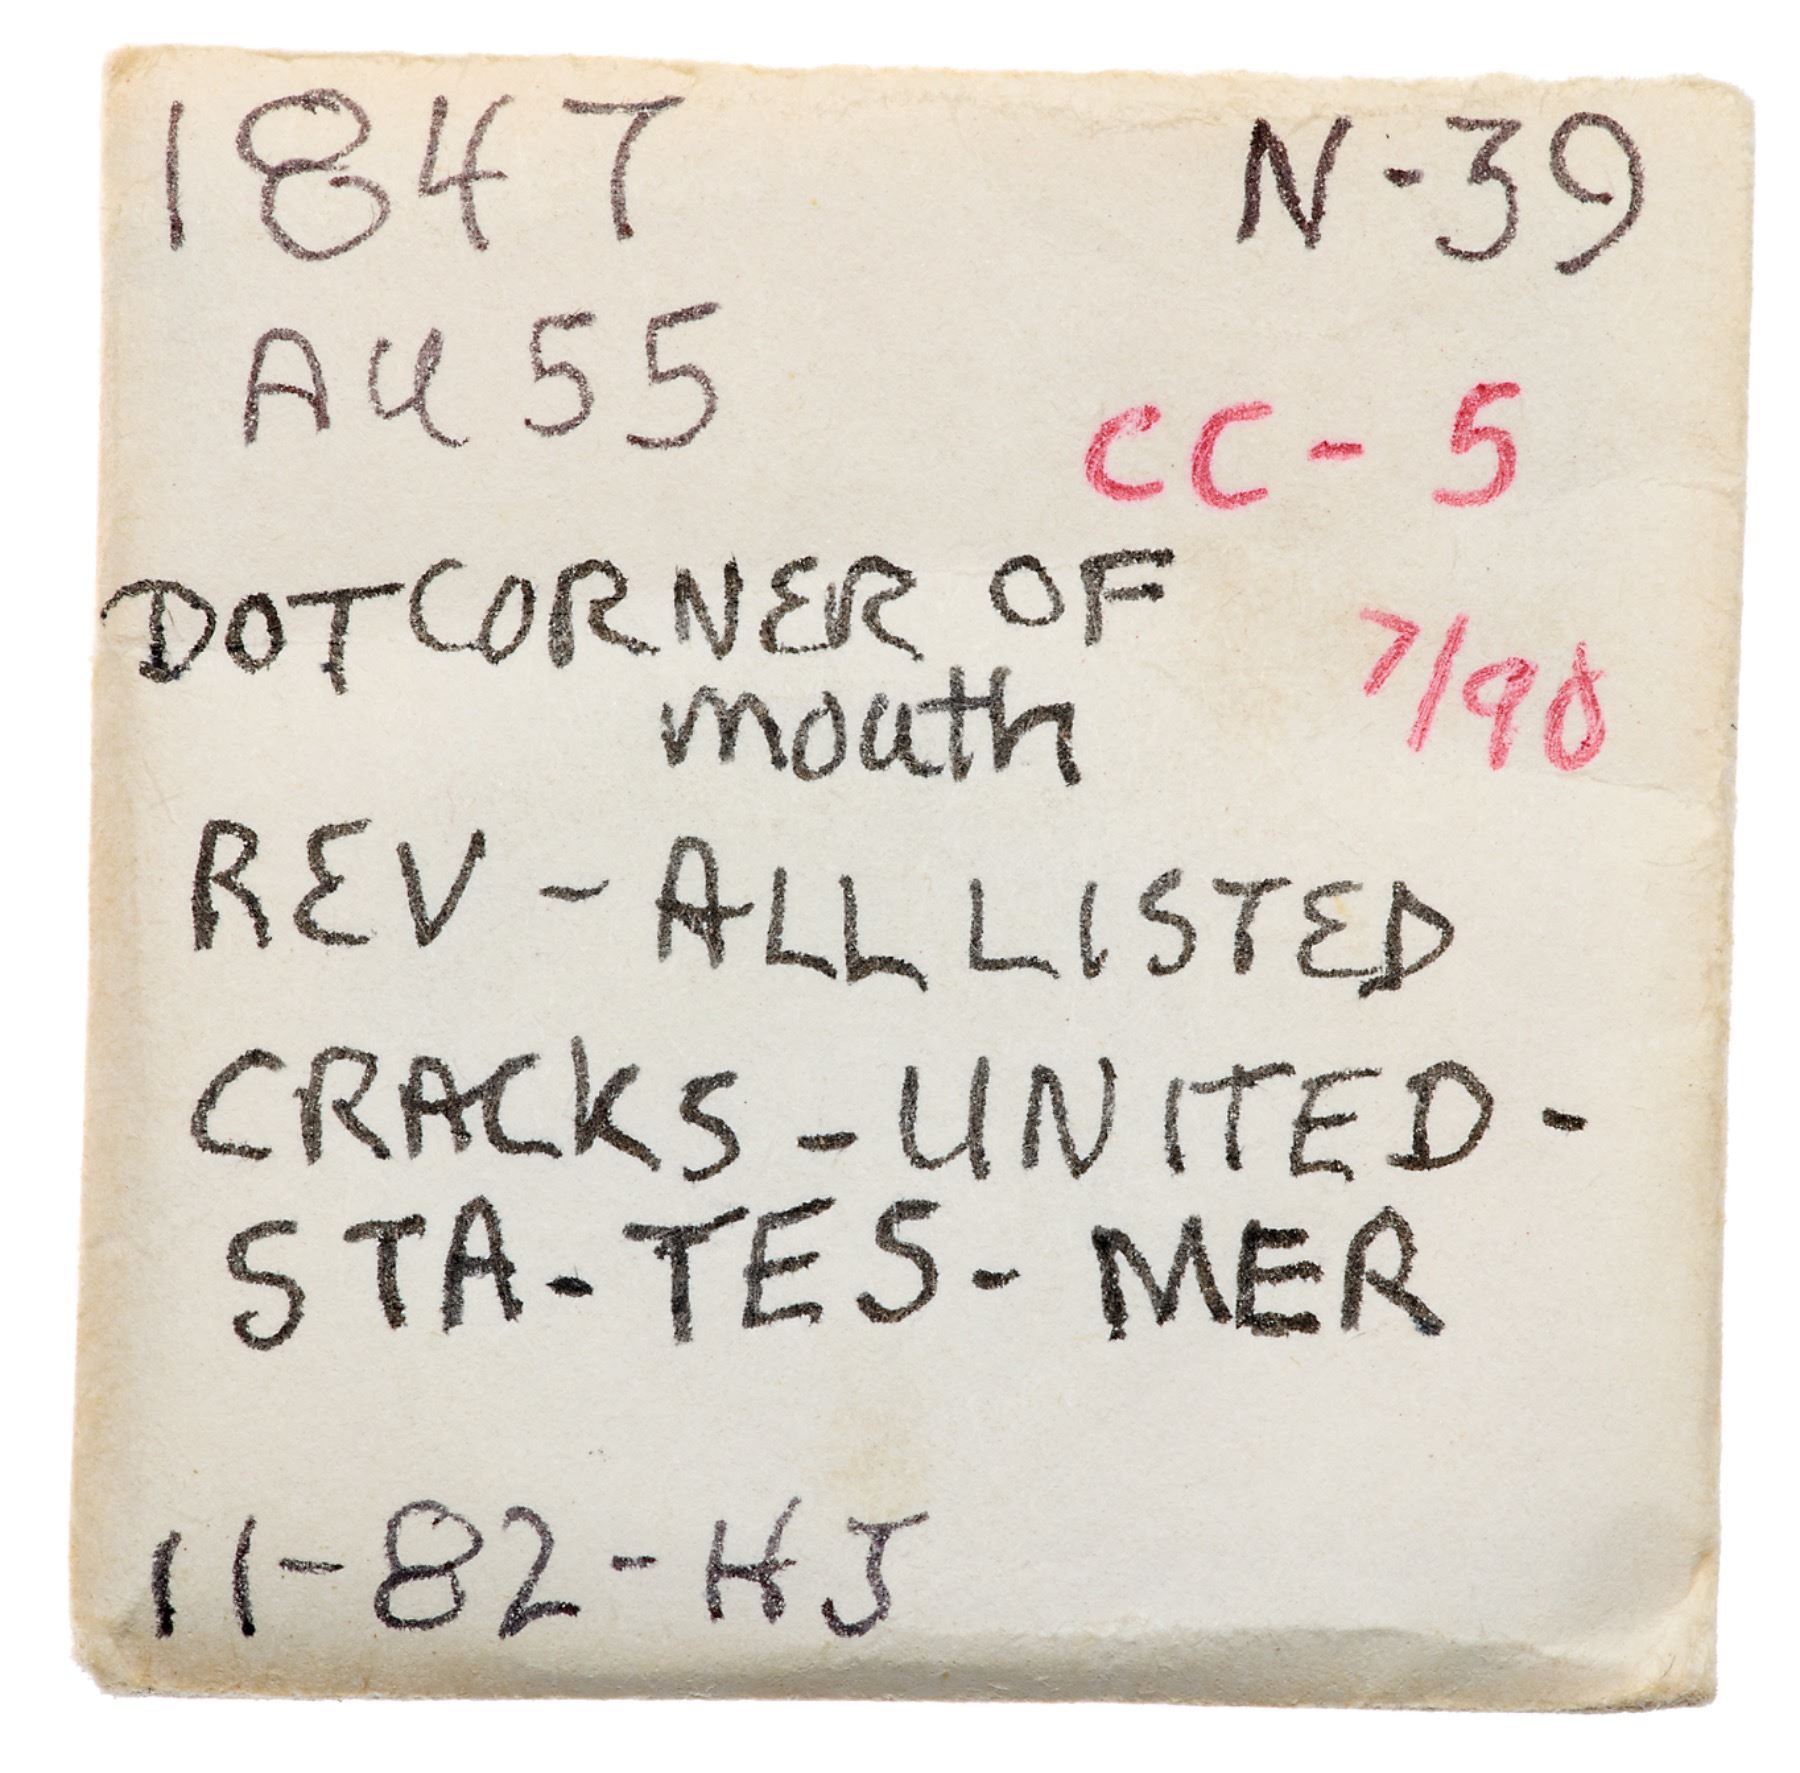 1847 N-39
AU 55
CC-5
DOT CORNER OF
mouth
7/90
REV - ALL LISTED
CRACKS - UNITED -
STA-TES - MER
11-82-HJ